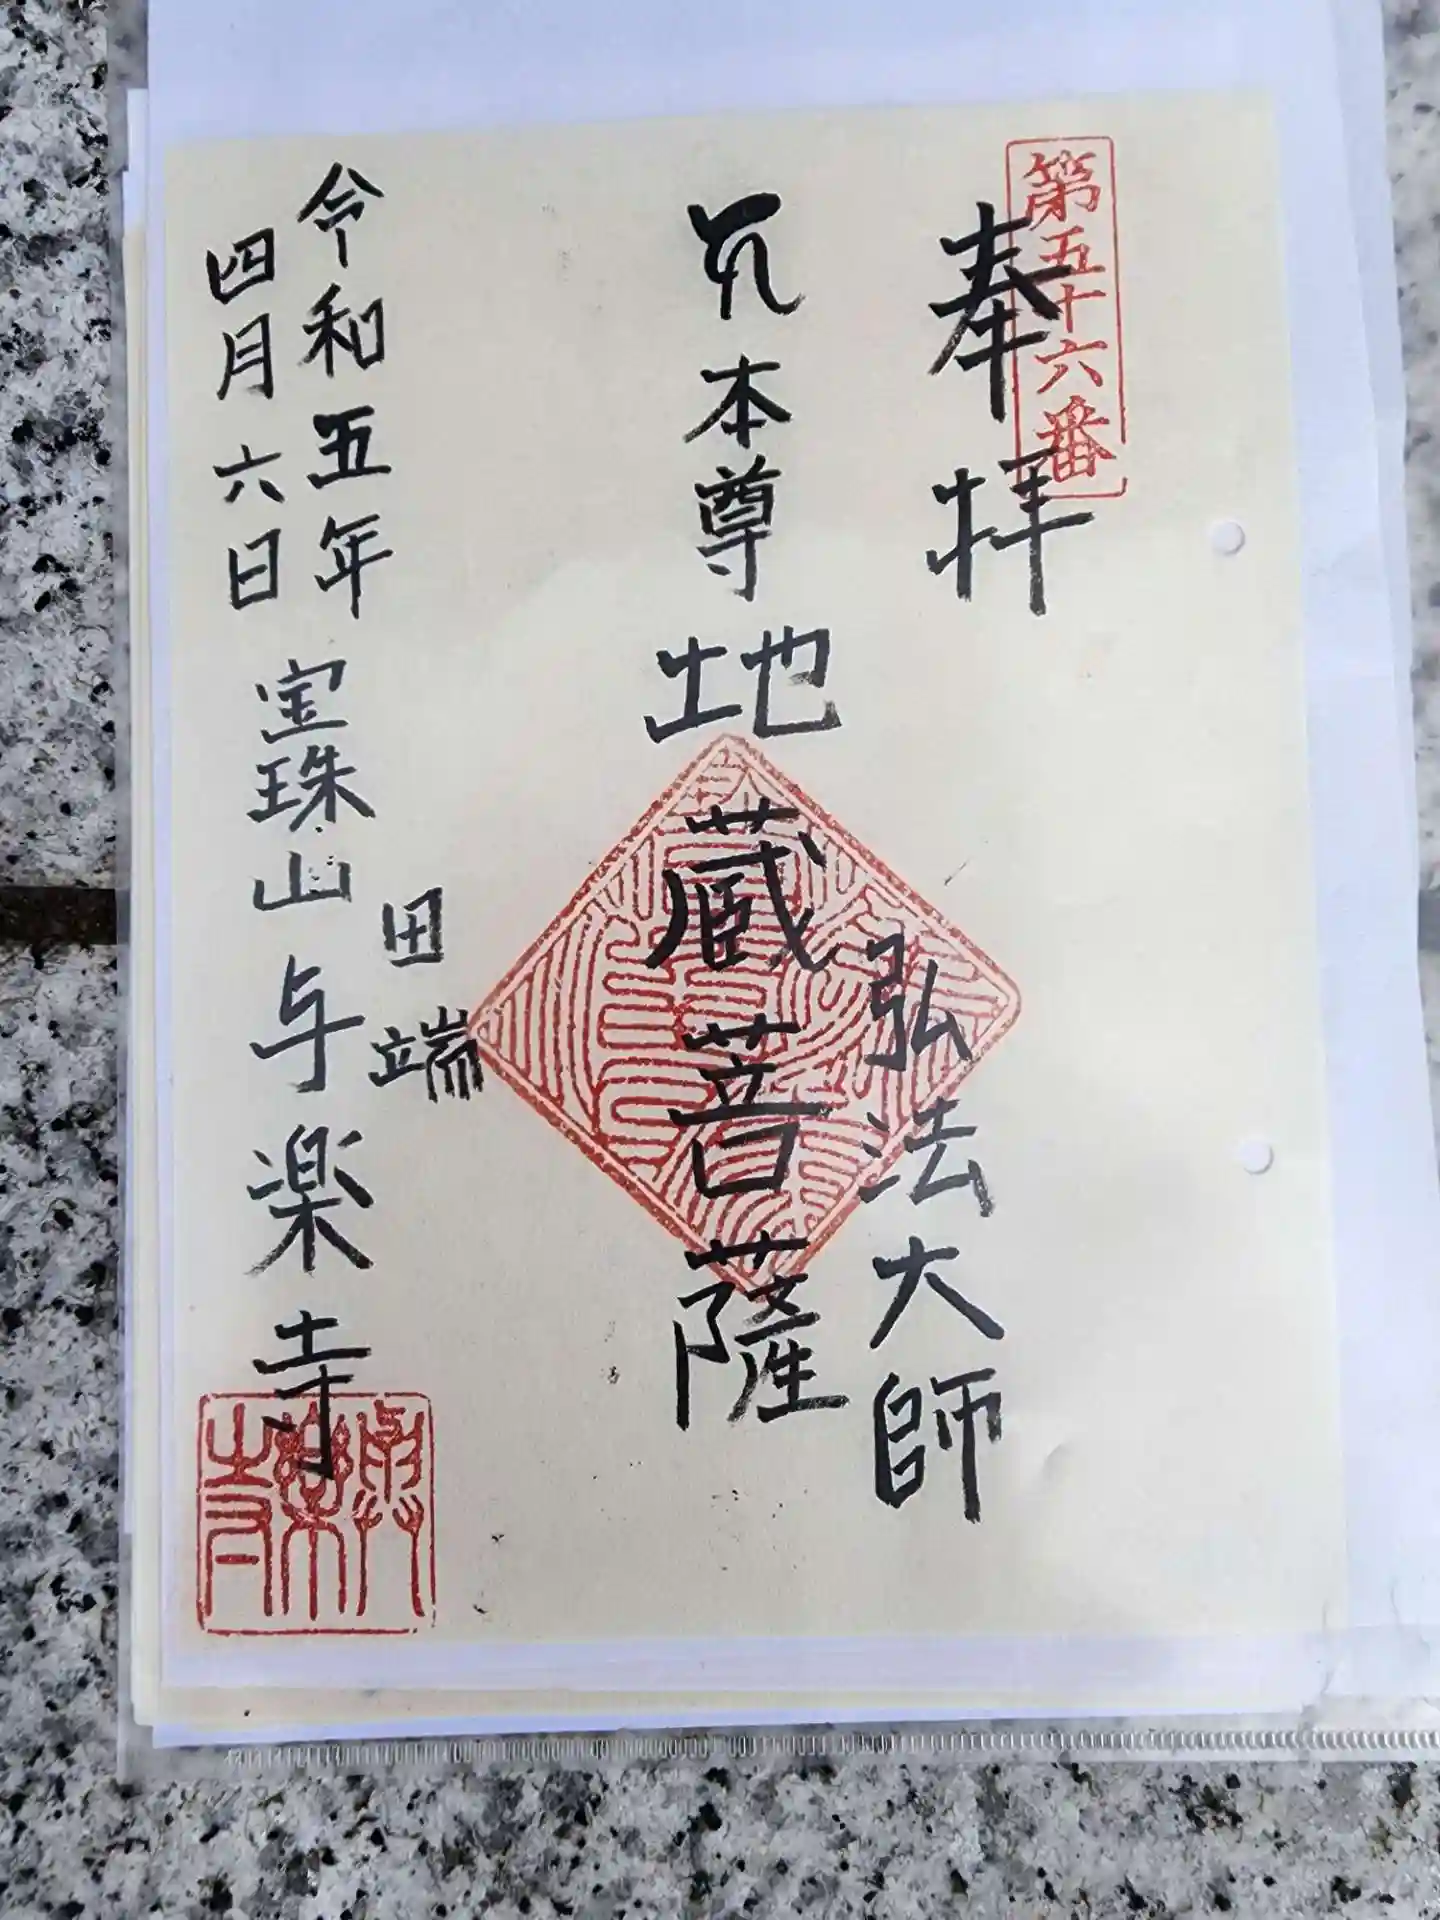 第五十六番
奉拝
弘法大師
本尊地蔵菩薩
田端
令和五年
四月六日
宝珠山与楽寺
與樂寺